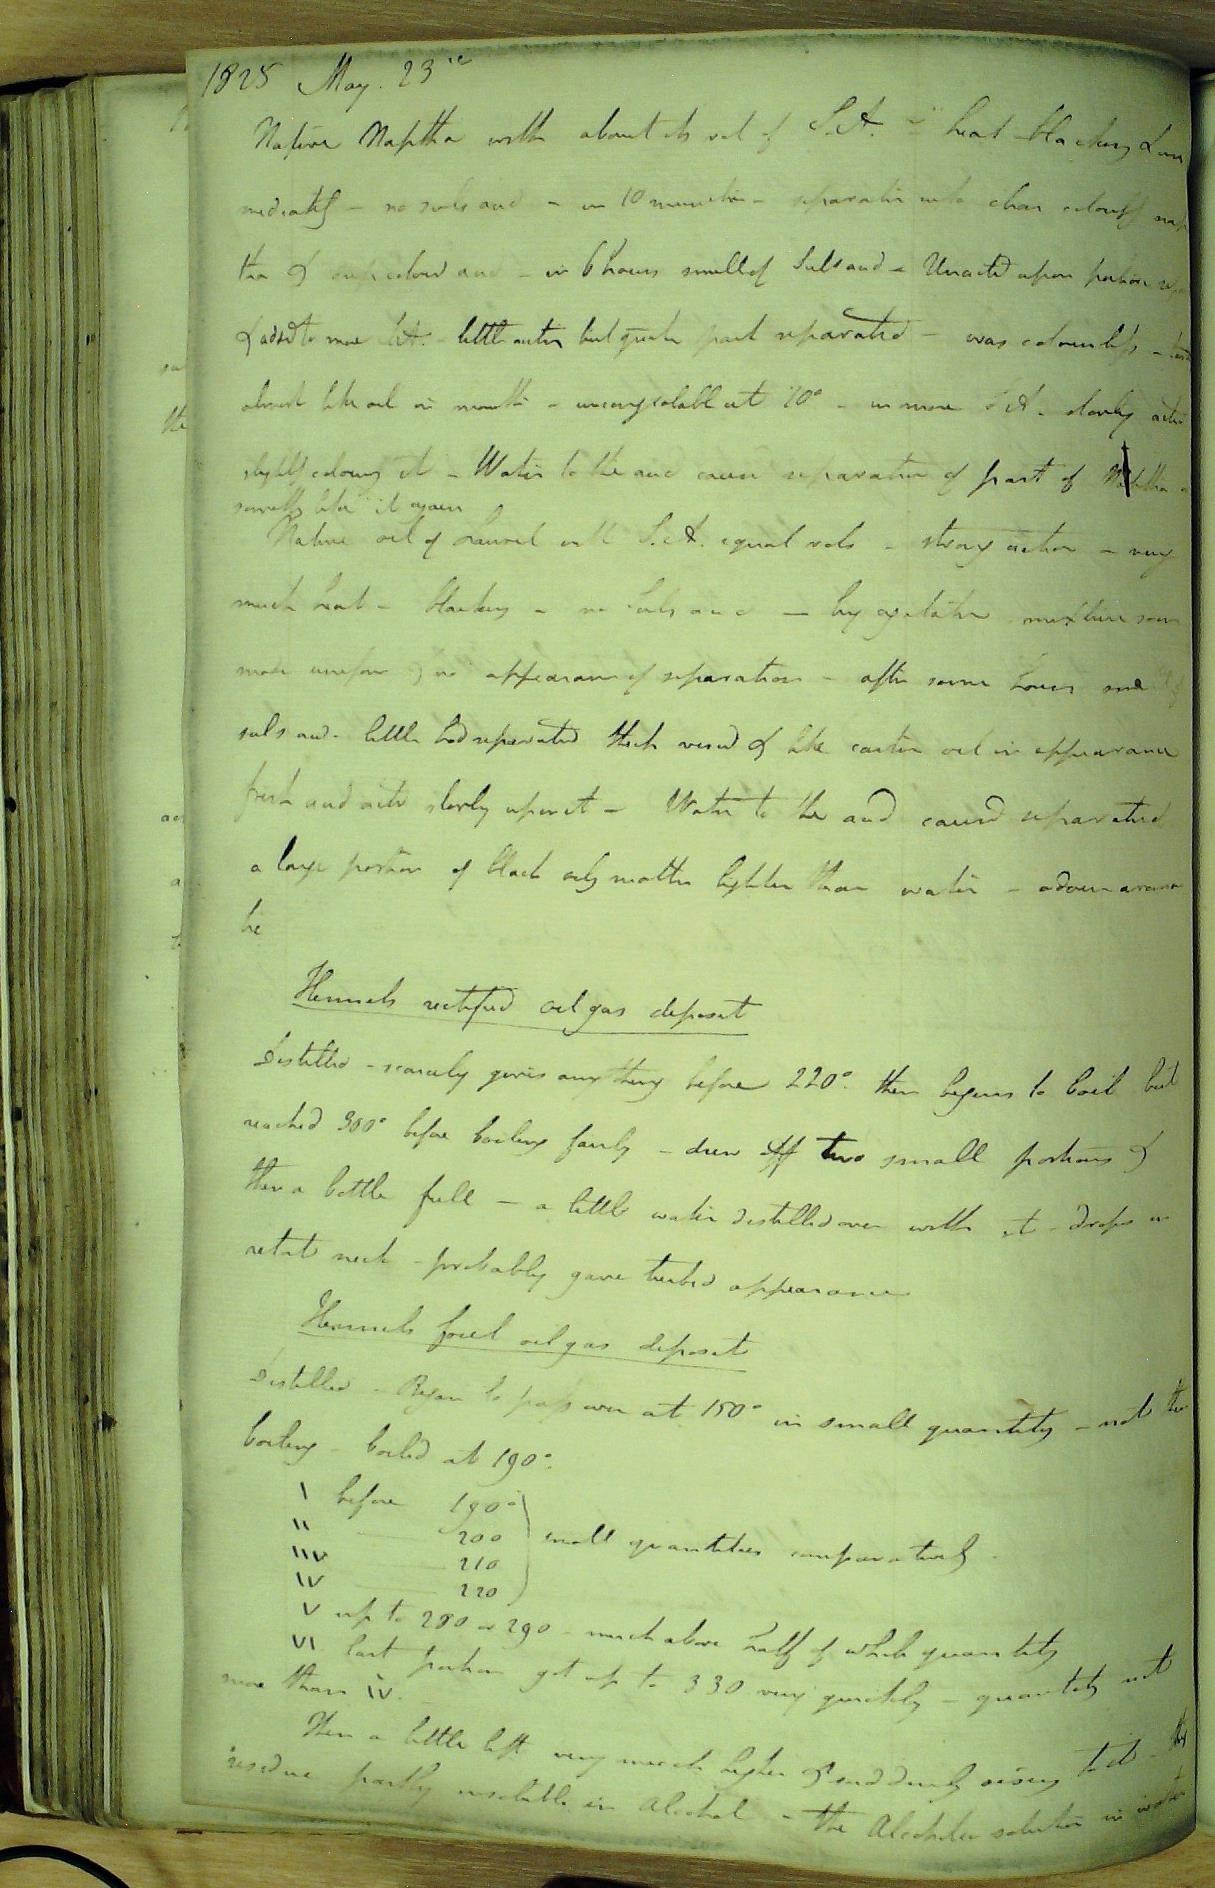 1825 May. 23rd
Native Naptha with about its vol of S.A. heat blackens & im
mediately - no sulp acid - in 10 minutes - separation into clear colourless nap
tha & deep colored acid - in 6 hours smell of Sul acid - Unacted upon portion
& added to more S.A. - little action but greater part separated - was colourless -
almost like oil in mouth - uncongealable at 20° - in more S.A. slowly acts
slightly colours it - Water to the acid causes separation of part of Naptha
something like it again
Native oil of Laurel with S.A. equal vols - strong action - very
much heat - blackens - no Suls acid - by agitation mixture soon
made uniform & no appearance of separation - after some hours smell of
suls acid - little had separated thick viscid & like castor oil in appearance
fresh acid acts slowly upon it - Water to the acid caused separated
a large portion of black oily matter lighter than water - odour aroma
tic
Hennels rectified oil gas deposit
Distilled - scarcely gives any thing before 220°. then begins to boil but
reached 300° before boiling fairly - drew off two small portions &
then a bottle full - a little water distilled over with it - drops in
retort neck - probably gave turbid appearance
Hennels foul oil gas deposit
Distilled - Began to pass over at 150° in small quantity - not then
boiling - boiled at 190°.
I before 190°
II — 200 small quantities comparatively
III — 210
IV — 220
V up to 280 or 290 - much above half of whole quantity
VI last portion got up to 330 very quickly - quantity not
more than IV.
Then a little left very much higher & suddenly rising to it - the
residue partly insoluble in Alcohol - the Alcoholic solution in water